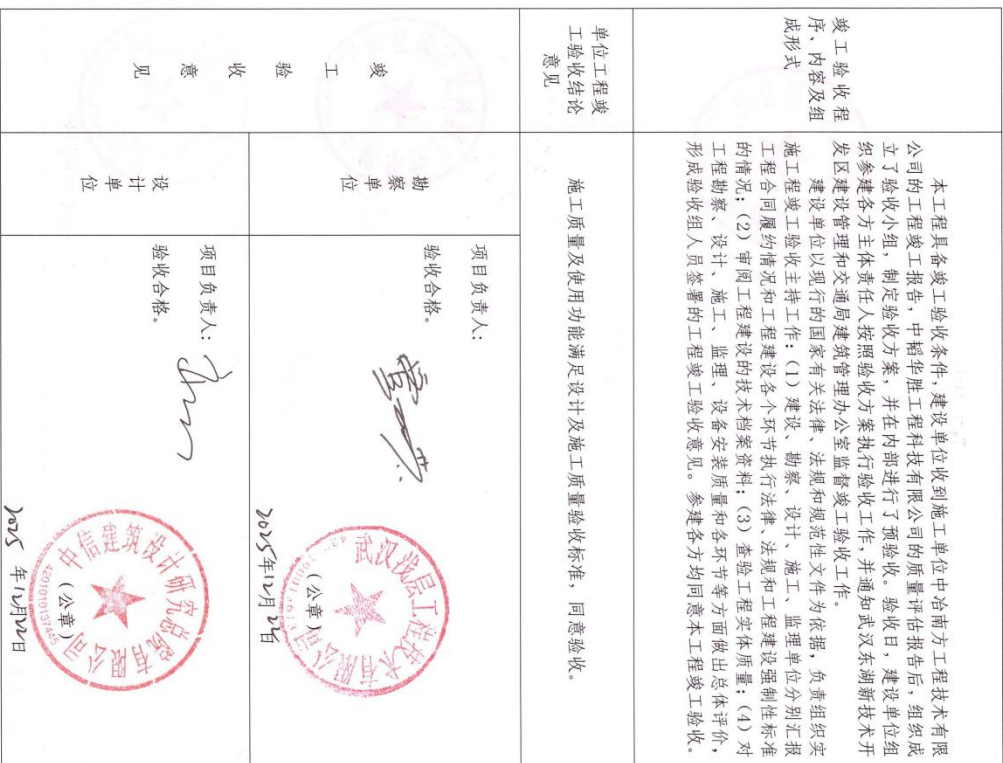 竣工验收程
序、内容及组
成形式
本工程具备竣工验收条件,建设单位收到施工单位中冶南方工程技术有限
公司的工程竣工报告,中韬华胜工程科技有限公司的质量评估报告后,组织成
立了验收小组,制定验收方案,并在内部进行了预验收。验收日,建设单位组
织参建各方主体责任人按照验收方案执行验收工作,并通知武汉东湖新技术开
发区建设管理和交通局建筑管理办公室监督竣工验收工作。
建设单位以现行的国家有关法律、法规和规范性文件为依据,负责组织实
施工程竣工验收主持工作:(1)建设、勘察、设计、施工、监理单位分别汇报
工程合同履约情况和工程建设各个环节执行法律、法规和工程建设强制性标准
的情况;(2)审阅工程建设的技术档案资料;(3)查验工程实体质量;(4)对
工程勘察、设计、施工、监理、设备安装质量和各环节等方面做出总体评价,
形成验收组人员签署的工程竣工验收意见。参建各方均同意本工程竣工验收。
单位工程竣
工验收结论
意见
施工质量及使用功能满足设计及施工质量验收标准,同意验收。
竣工验收意见
勘察单位
项目负责人:
验收合格。
武汉浅层工程技术有限公司
(公章)
2025年12月22日
设计单位
项目负责人:
验收合格。
中信建筑设计研究总院有限公司
(公章)
2025年12月22日